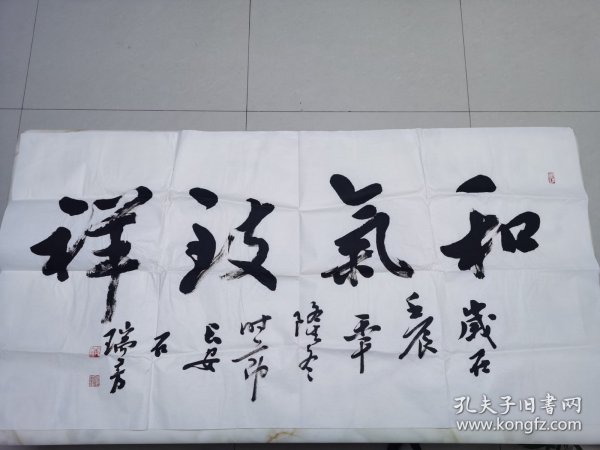 和氣致祥
歲在
壬辰
年
隆冬
时節
长安
石
瑞芳
孔夫子旧书网
www.kongfz.com